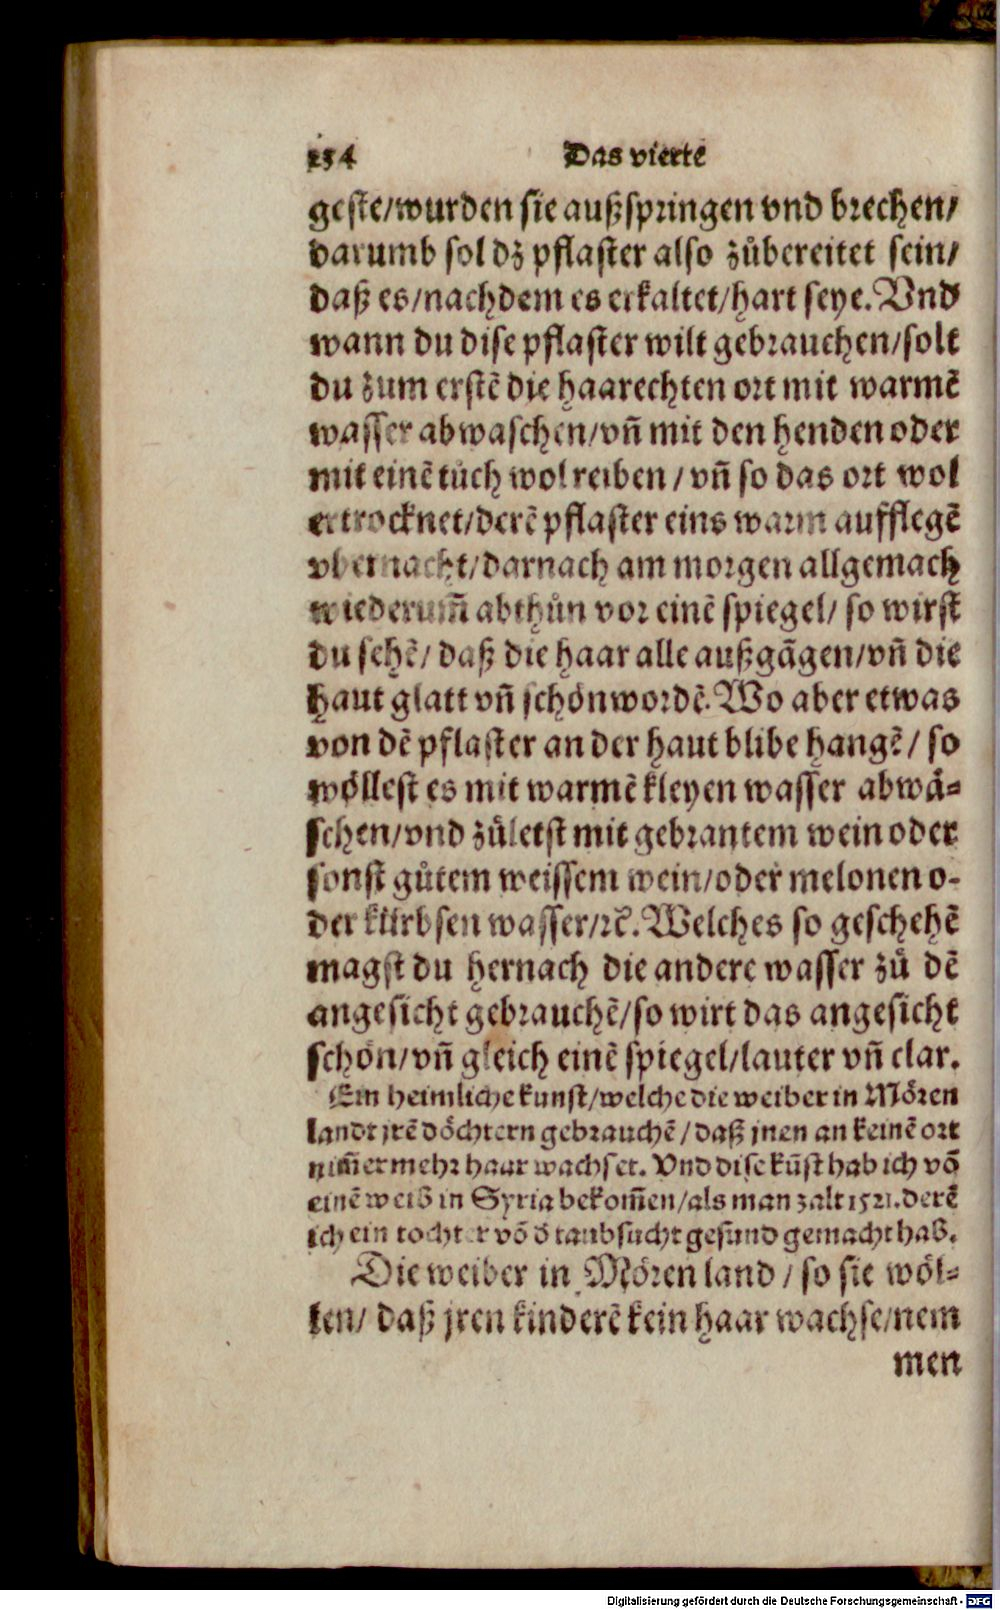 254 Das vierte
geste/wurden sie außspringen vnd brechen/
darumb sol dz pflaster also zůbereitet sein/
daß es/nachdem es erkaltet/hart seye. Vnd
wann du dise pflaster wilt gebrauchen/solt
du zum erstē die haarechten ort mit warmē
wasser abwaschen/vn̄ mit den henden oder
mit einē tůch wol reiben/vn̄ so das ort wol
ertrocknet/derē pflaster eins warm aufflegē
vbernacht/darnach am morgen allgemach
wiederum̄ abthůn vor einē spiegel/ so wirst
du sehē/ daß die haar alle außgāgen/vn̄ die
haut glatt vn̄ schön wordē. Wo aber etwas
von dē pflaster an der haut blibe hangē/ so
wöllest es mit warmē kleyen wasser abwä⸗
schen/vnd zůletst mit gebrantem wein oder
sonst gůtem weissem wein/oder melonen o-
der kürbsen wasser/ꝛc̄. Welches so geschehē
magst du hernach die andere wasser zů dē
angesicht gebrauchē/so wirt das angesicht
schön/vn̄ gleich einē spiegel/lauter vn̄ clar.
Ein heimliche kunst/welche die weiber in Mören
landt jrē döchtern gebrauchē/daß jnen an keinē ort
nim̄ermehr haar wachset. Vnd dise kūst hab ich vō
einē weib in Syria bekom̄en/als man zalt 1521. derē
ich ein tochter vō d̄ taubsucht gesund gemacht hab.
Die weiber in Mören land/ so sie wöl⸗
len/ daß jren kinderē kein haar wachse/nem
men
Digitalisierung gefördert durch die Deutsche Forschungsgemeinschaft - DFG